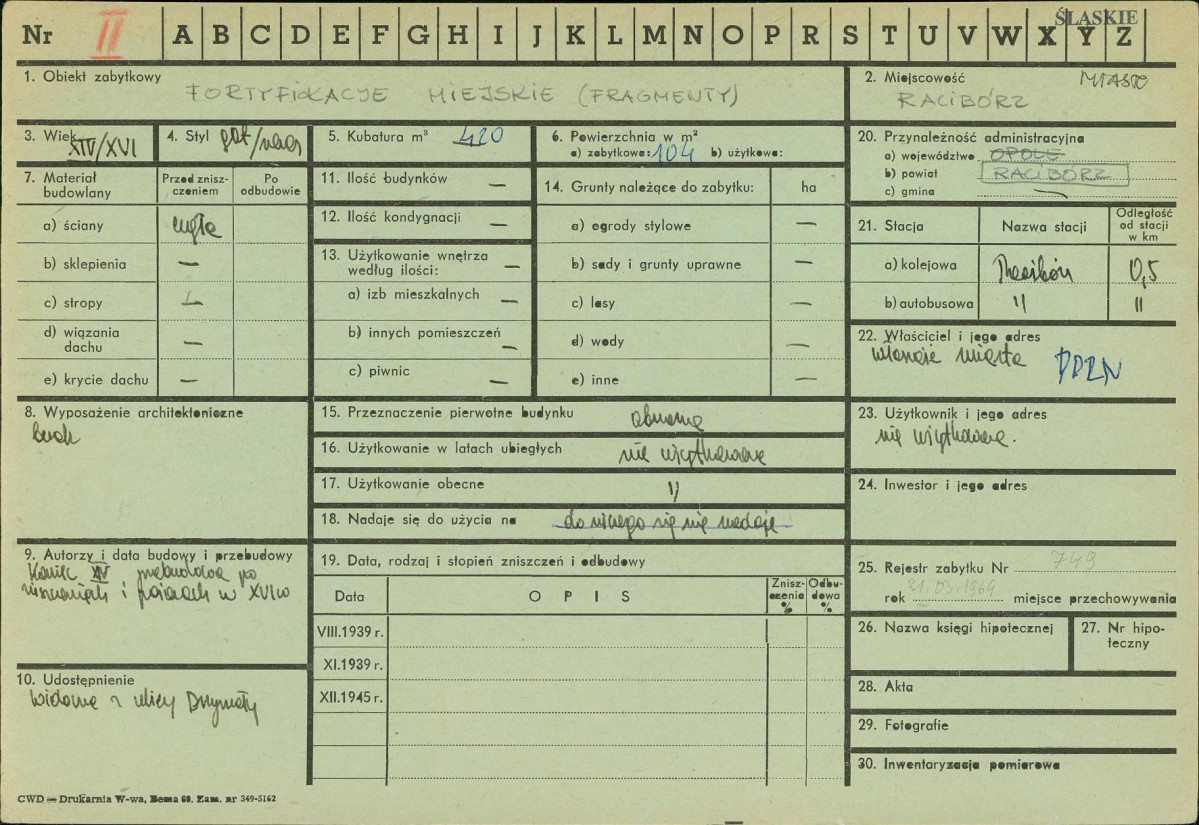 ŚLĄSKIE
Nr II A B C D E F G H I J K L M N O P R S T U V W X Y Z
1. Obiekt zabytkowy
FORTYFIKACJE MIEJSKIE (FRAGMENTY)
2. Miejscowość MIASTO
RACIBÓRZ
3. Wiek XIV/XVI
4. Styl got/
5. Kubatura m³ 420
6. Powierzchnia w m²
a) zabytkowa: 104 b) użytkowa:
7. Materiał budowlany
Przed znisz-
czeniem
Po
odbudowie
a) ściany cegła
b) sklepienia —
c) stropy —
d) wiązania
dachu —
e) krycie dachu —
8. Wyposażenie architektoniczne
brak
9. Autorzy i data budowy i przebudowy
Koniec XV przebudowa po
zniszczeniach i pożarach w XVI w
10. Udostępnienie
widoczne z ulicy Drzymały
11. Ilość budynków —
12. Ilość kondygnacji —
13. Użytkowanie wnętrza
według ilości: —
a) izb mieszkalnych —
b) innych pomieszczeń —
c) piwnic —
14. Grunty należące do zabytku: ha
a) ogrody stylowe —
b) sady i grunty uprawne —
c) lasy —
d) wody —
e) inne —
15. Przeznaczenie pierwotne budynku obronne
16. Użytkowanie w latach ubiegłych nie użytkowane
17. Użytkowanie obecne "
18. Nadaje się do użycia na do niczego się nie nadaje
19. Data, rodzaj i stopień zniszczeń i odbudowy
Data OPIS
Znisz-
czenia
%
Odbu-
dowa
%
VIII.1939 r.
XI.1939 r.
XII.1945 r.
20. Przynależność administracyjna
a) województwo OPOLE
b) powiat RACIBÓRZ
c) gmina —
21. Stacja Nazwa stacji
Odległość
od stacji
w km
a) kolejowa Racibórz 0,5
b) autobusowa " "
22. Właściciel i jego adres
miasta PPRN
23. Użytkownik i jego adres
nie użytkowane.
24. Inwestor i jego adres
25. Rejestr zabytku Nr 749
rok 31.03.1964 miejsce przechowywania
26. Nazwa księgi hipotecznej
27. Nr hipo-
teczny
28. Akta
29. Fotografie
30. Inwentaryzacja pomiarowa
CWD — Drukarnia W-wa, Bema 60. Zam. nr 349-5162